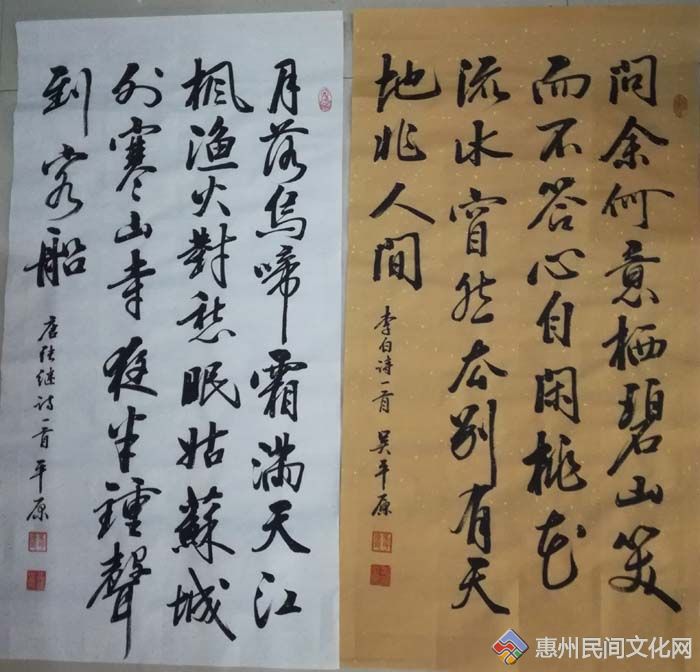 问余何意栖碧山笑
而不答心自闲桃花
流水窅然去别有天
地非人间
李白诗一首 吴平原
月落乌啼霜满天江
枫渔火對愁眠姑蘇城
外寒山寺夜半鍾聲
到客船
唐张继诗一首 平原
惠州民间文化网